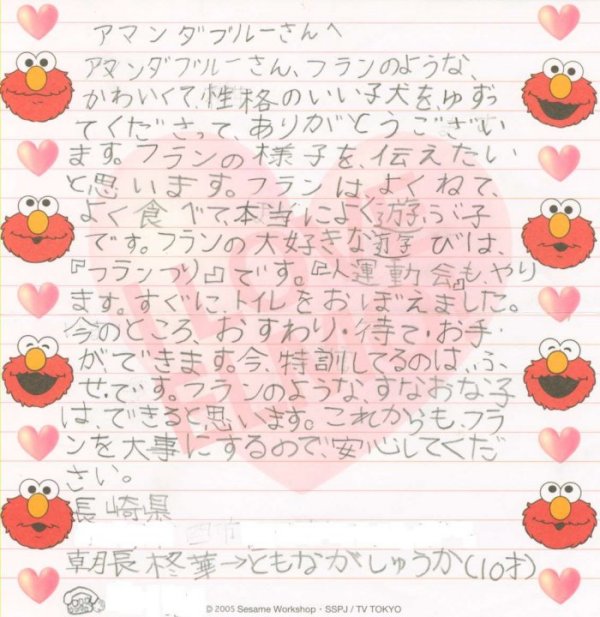 アマンダブルーさんへ
アマンダブルーさん、フランのような、
かわいくて、性格のいい子犬をゆずっ
てくださって、ありがとうござい
ます。フランの様子を、伝えたい
と思います。フランは、よくねて、
よく食べて、本当によく遊ぶ子
です。フランの大好きな遊びは、
『フランづり』です。『一人運動会』も、やり
ます。すぐに、トイレをおぼえました。
今のところ、おすわり・待て・お手・
が、できます。今、特訓してるのは、ふ
せ・です。フランのような、すなおな子
は、できると思います。これからも、フラ
ンを大事にするので、安心してくだ
さい。
長崎県
朝長柊華→ともながしゅうか(10才)
© 2005 Sesame Workshop・SSPJ / TV TOKYO